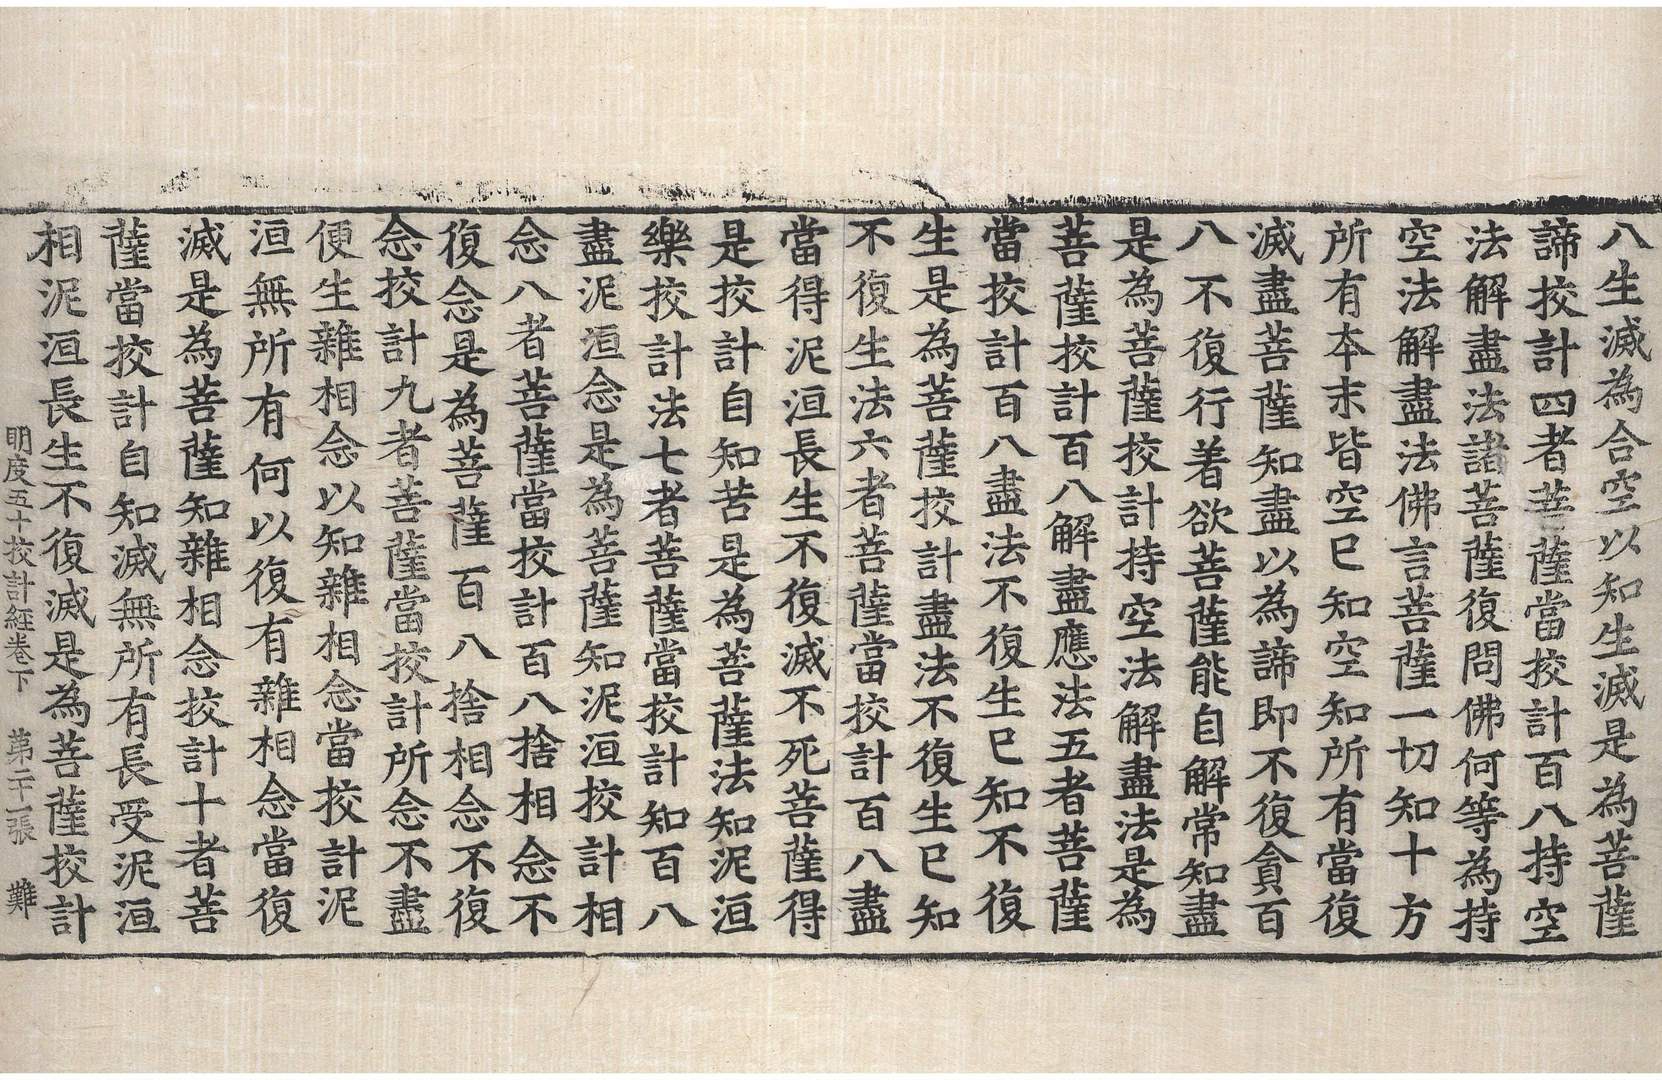 八生滅為合空以知生滅是為菩薩
諦挍計四者菩薩當挍計百八持空
法解盡法諸菩薩復問佛何等為持
空法解盡法佛言菩薩一切知十方
所有本末皆空已知空知所有當復
滅盡菩薩知盡以為諦即不復貪百
八不復行著欲菩薩能自解常知盡
是為菩薩挍計持空法解盡法是為
菩薩挍計百八解盡應法五者菩薩
當挍計百八盡法不復生已知不復
生是為菩薩挍計盡法不復生已知
不復生法六者菩薩當挍計百八盡
當得泥洹長生不復滅不死菩薩得
是挍計自知苦是為菩薩法知泥洹
樂挍計法七者菩薩當挍計知百八
盡泥洹念是為菩薩知泥洹挍計相
念八者菩薩當挍計百八捨相念不
復念是為菩薩百八捨相念不復
念挍計九者菩薩當挍計所念不盡
便生雜相念以知雜相念當挍計泥
洹無所有何以復有雜相念當復
滅是為菩薩知雜相念挍計十者菩
薩當挍計自知滅無所有長受泥洹
相泥洹長生不復滅是為菩薩挍計
明度五十挍計經卷下 第二十一張 難